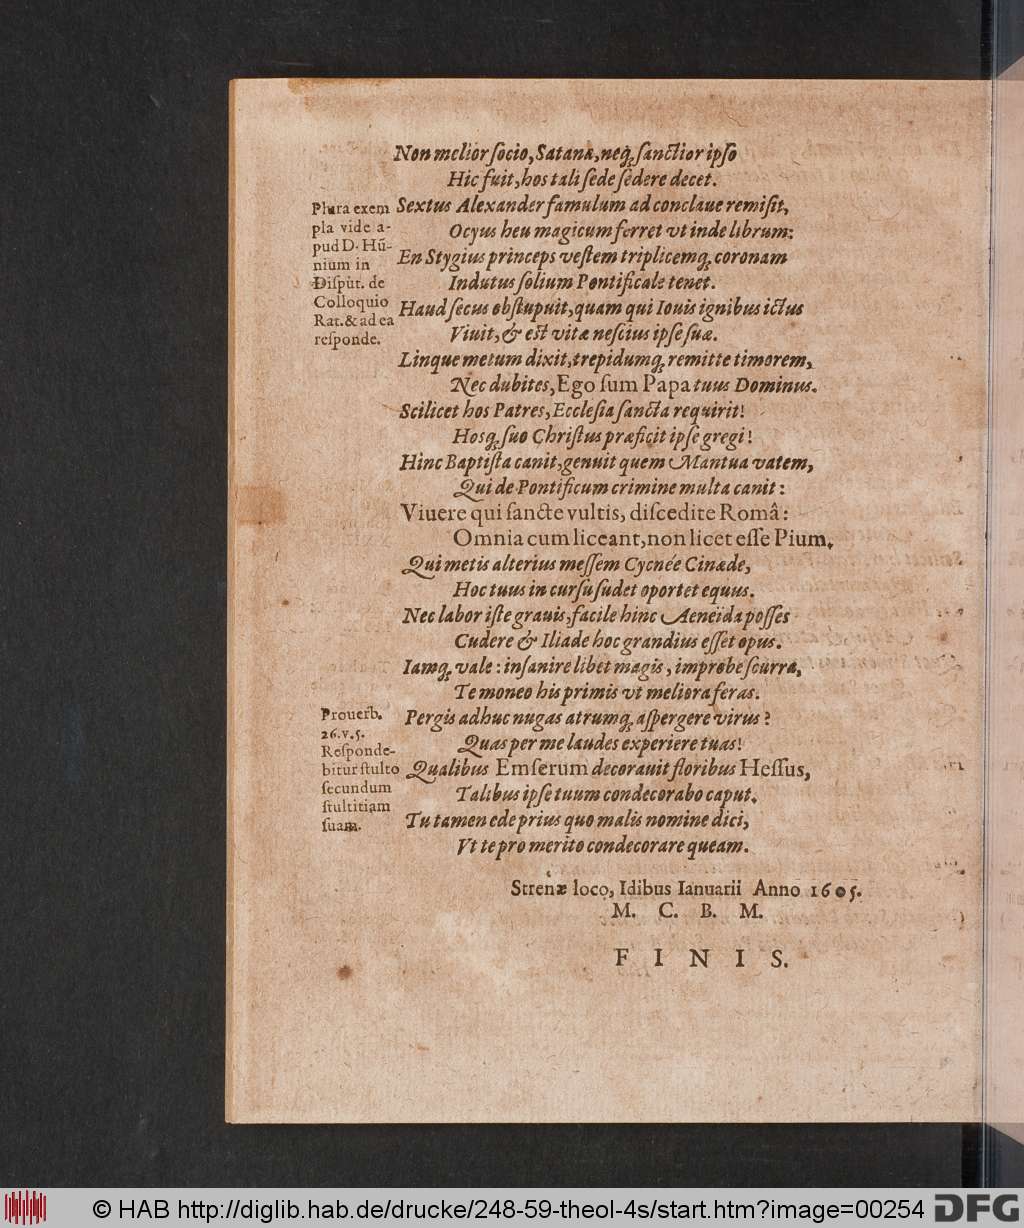 Non melior socio, Satana, neq; sanctior ipso
Hic fuit, hos tali sede sedere decet.
Plura exem
pla vide a-
pud D. Hũ-
nium in
Disput. de
Colloquio
Rat. & ad ea
responde.
Sextus Alexander famulum ad conclaue remisit,
Ocyus heu magicum ferret vt inde librum:
En Stygius princeps vestem triplicemq; coronam
Indutus solium Pontificale tenet.
Haud secus obstupuit, quam qui Iouis ignibus ictus
Viuit, & est vitæ nescius ipse suæ.
Linque metum dixit, trepidumq; remitte timorem,
Nec dubites, Ego sum Papa tuus Dominus.
Scilicet hos Patres, Ecclesia sancta requirit!
Hosq; suo Christus præficit ipse gregi!
Hinc Baptista canit, genuit quem Mantua vatem,
Qui de Pontificum crimine multa canit:
Viuere qui sancte vultis, discedite Româ:
Omnia cum liceant, non licet esse Pium.
Qui metis alterius messem Cycnée Cinæde,
Hoc tuus in cursu sudet oportet equus.
Nec labor iste grauis, facile hinc Aeneïda posses
Cudere & Iliade hoc grandius esset opus.
Iamq; vale: insanire libet magis, improbe scurra,
Te moneo his primis vt meliora feras.
Prouerb.
26. v. 5.
Responde-
bitur stulto
secundum
stultitiam
suam.
Pergis adhuc nugas atrumq; aspergere virus?
Quas per me laudes experiere tuas!
Qualibus Emserum decorauit floribus Hessus,
Talibus ipse tuum condecorabo caput.
Tu tamen ede prius quo malis nomine dici,
Vt te pro merito condecorare queam.
Strenæ loco, Idibus Ianuarii Anno 1605.
M. C. B. M.
F I N I S.
© HAB http://diglib.hab.de/drucke/248-59-theol-4s/start.htm?image=00254
DFG